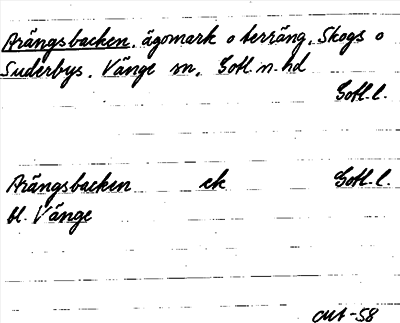 Arängsbacken, ägomark o terräng, Skogs o
Suderbys, Vänge sn, Gotl. n. hd
Gotl. l.
Arängsbacken ek Gotl. l.
bl. Vänge
-58